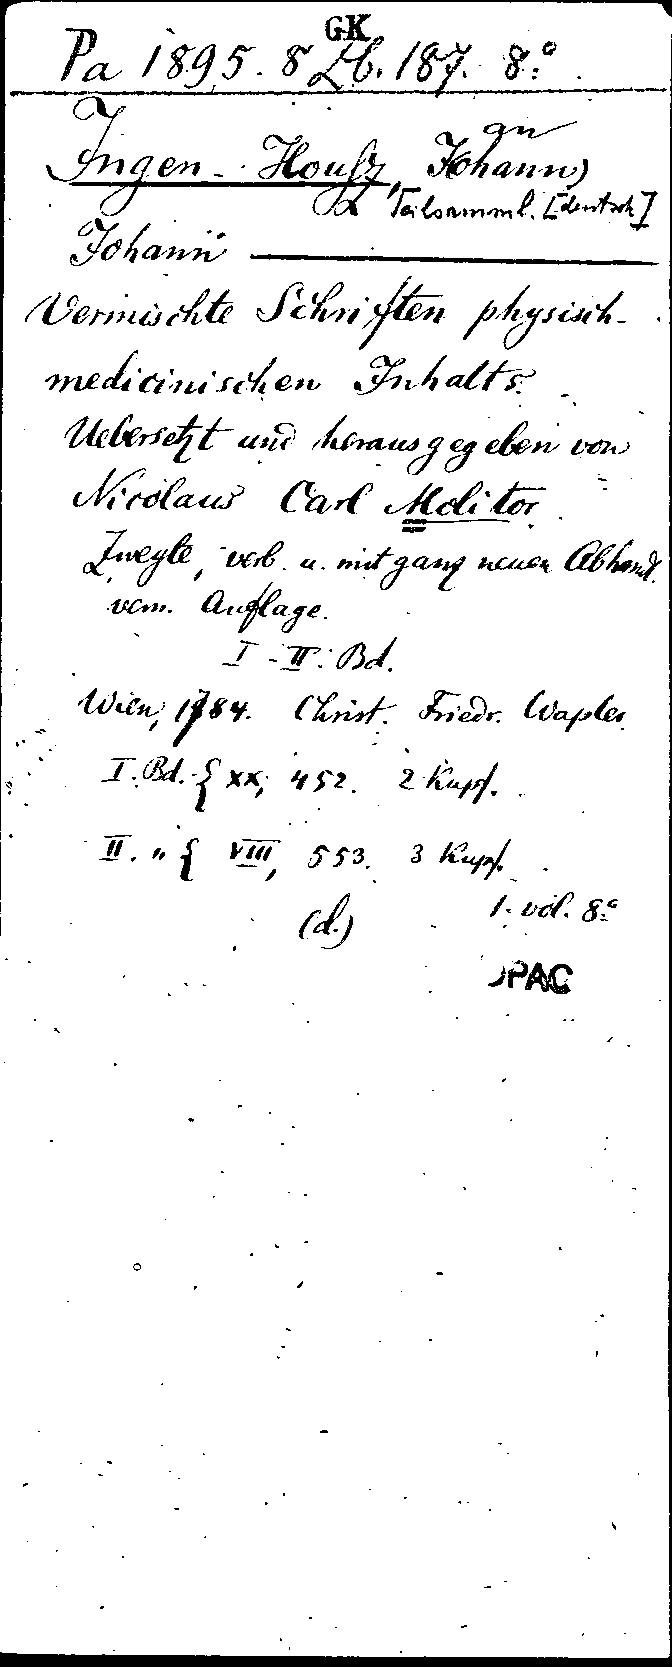 GK
Pa 1895. 8 Lb. 187. 8.°
an
Ingen-Housz, Johann
Teilsamml. [deutsch]
Johann
Vermischte Schriften physisch-
medicinischen Inhalts.
Uebersetzt und herausgegeben von
Nicolaus Carl Molitor
Zweyte, verb. u. mit ganz neuen Abhandl.
verm. Auflage.
I-II. Bd.
Wien, 1784. Christ. Friedr. Wapler.
I. Bd. { XX, 452. 2 Kupf.
II. " { VIII, 553. 3 Kupf.
1. vol. 8.°
(d.)
OPAC